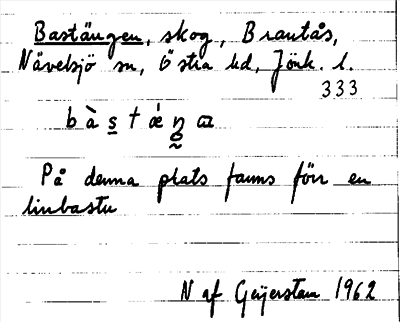 Bastängen, skog, Brantås,
Nävelsjö sn, Östra hd, Jönk. l.
333
b à s t ǽ ŋ ɷ
På denna plats fanns förr en
linbastu
N af Geijerstam 1962